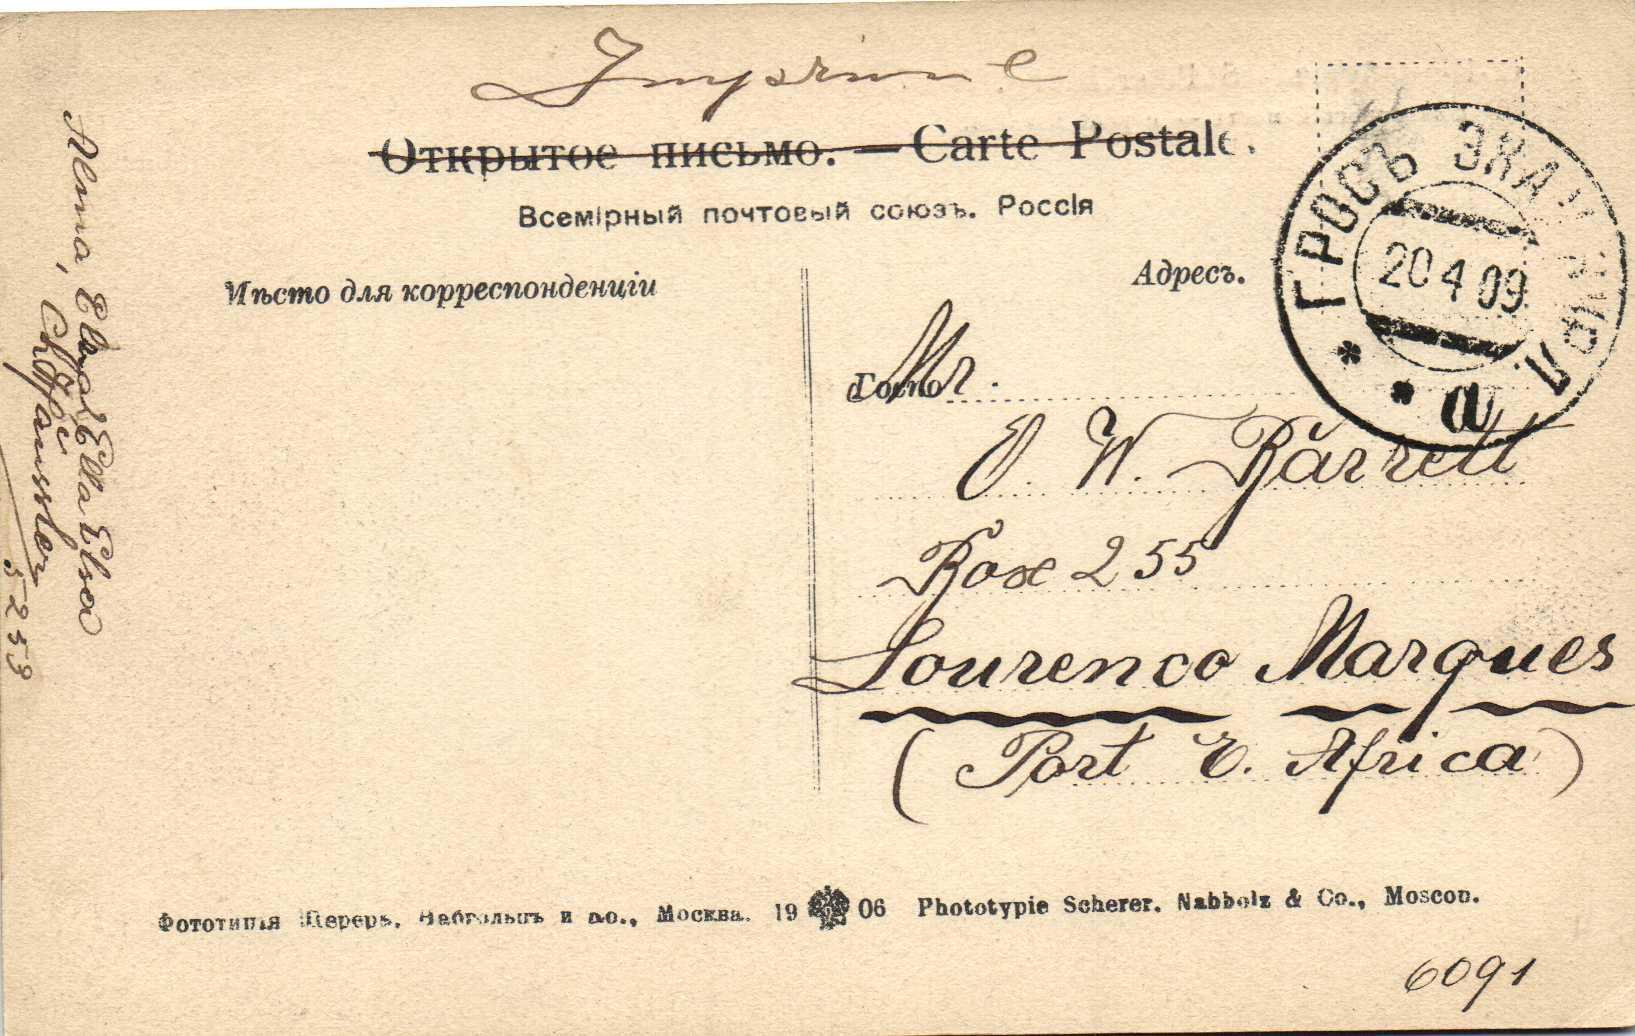 Imprime
Открытое письмо. — Carte Postale.
Всемірный почтовый союзъ. Россія
Мѣсто для корреспонденціи
Адресъ.
ГРОСЪ
20 4 09
а
Mr.
O. W. Barrett
Box 255
Lourenco Marques
(Port E. Africa)
Alma, Ella Elsa
5253
Фототипія Шереръ, Набгольцъ и Ко., Москва. 19 06 Phototypie Scherer, Nabholz & Co., Moscou.
6091